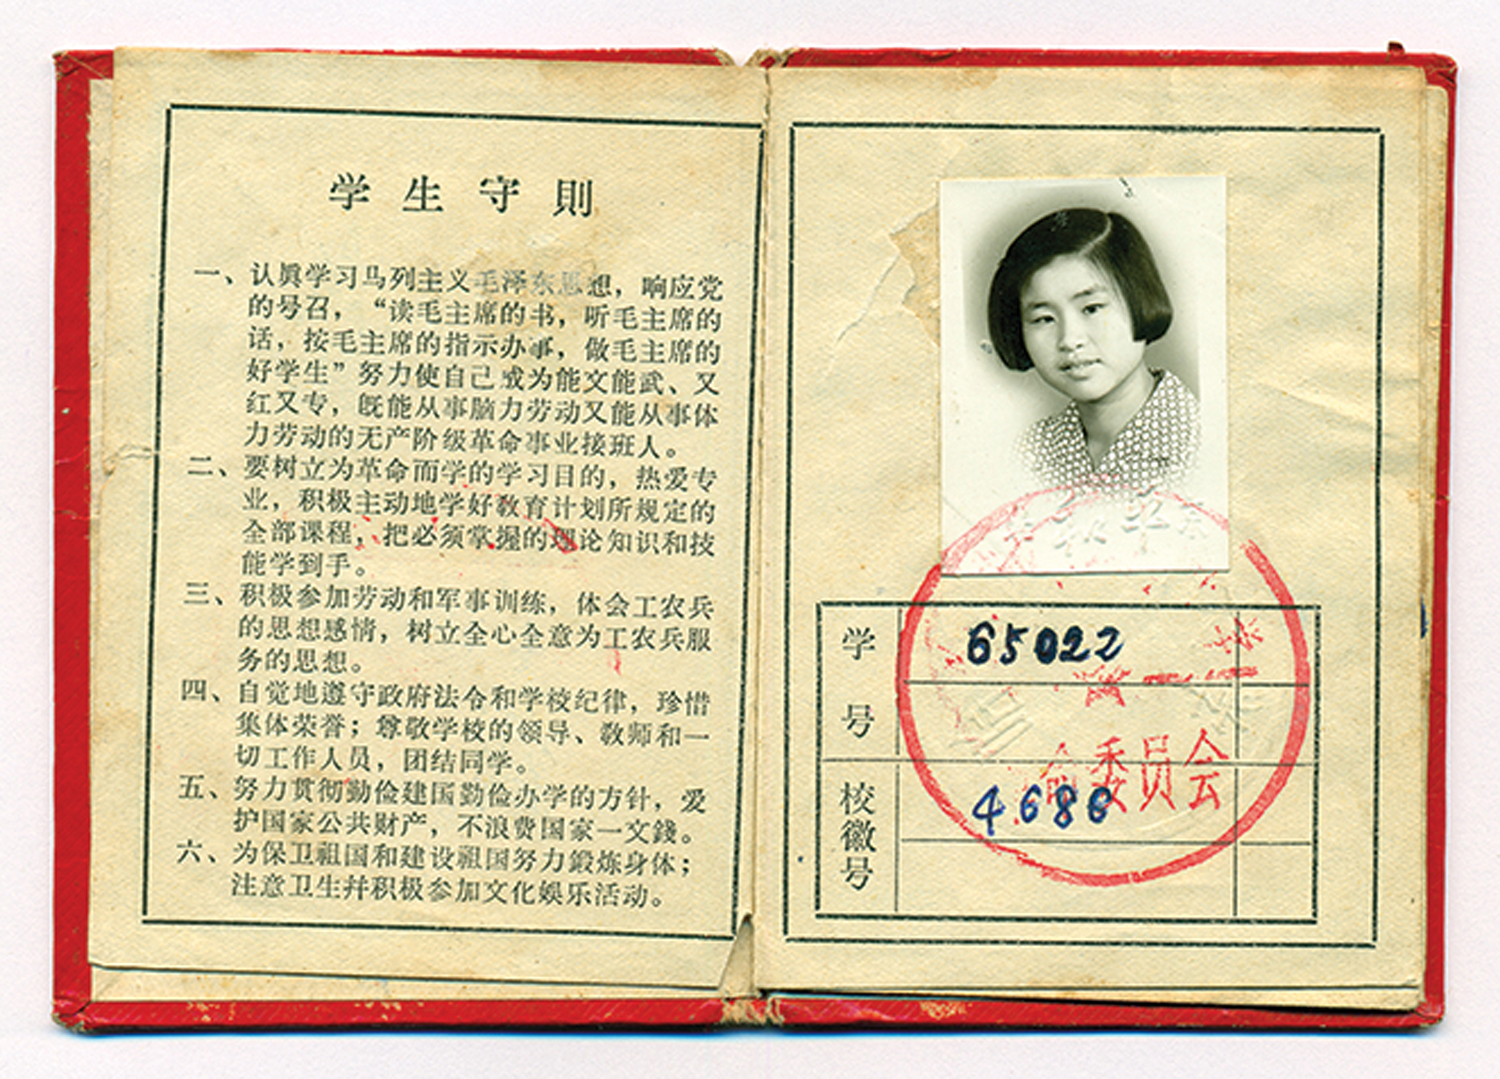 学生守則
一、认眞学习马列主义毛泽东思想，响应党
的号召，“读毛主席的书，听毛主席的
话，按毛主席的指示办事，做毛主席的
好学生”努力使自己成为能文能武、又
红又专，旣能从事脑力劳动又能从事体
力劳动的无产阶级革命事业接班人。
二、要树立为革命而学的学习目的，热爱专
业，积极主动地学好敎育计划所规定的
全部课程，把必须掌握的理论知识和技
能学到手。
三、积极参加劳动和军事训练，体会工农兵
的思想感情，树立全心全意为工农兵服
务的思想。
四、自觉地遵守政府法令和学校纪律，珍惜
集体荣誉；尊敬学校的领导、敎师和一
切工作人员，团结同学。
五、努力贯彻勤俭建国勤俭办学的方针，爱
护国家公共财产，不浪费国家一文錢。
六、为保卫祖国和建设祖国努力鍛炼身体；
注意卫生幷积极参加文化娱乐活动。
学号 65022
校徽号 4686
委员会